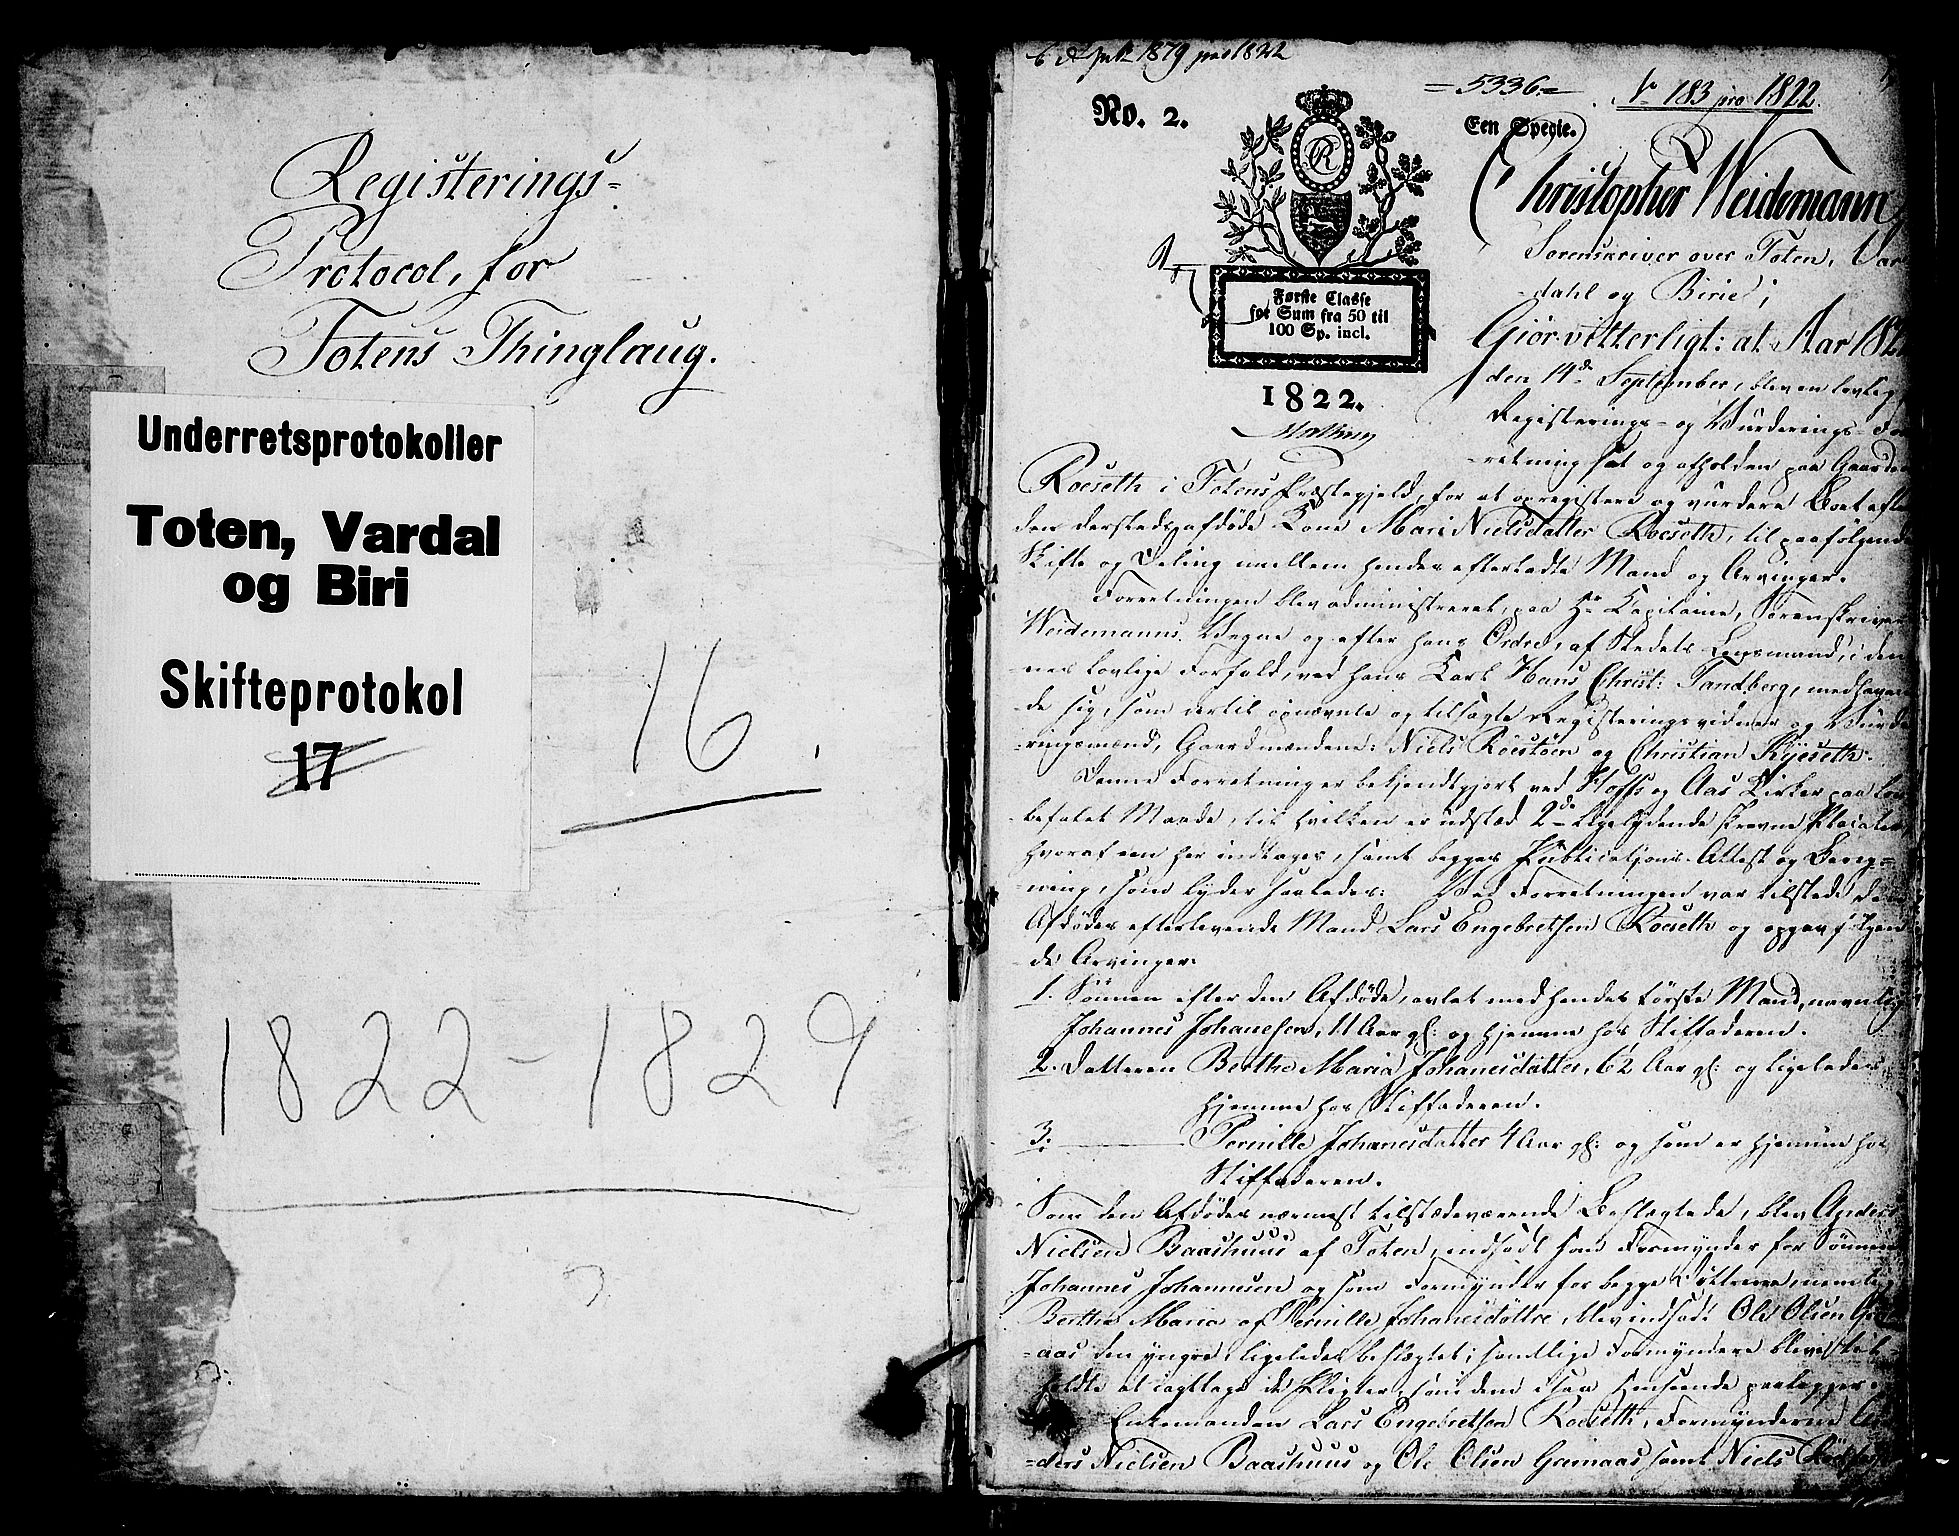 Registerings-
Protocol, for
Totens Thinglaug.
Underretsprotokoller
Toten, Vardal
og Biri
Skifteprotokol
17
16
1822-1829
1879 pro 1822
=5336=
No 183 pro 1822
No. 2.
Een Specie.
Første Classe
for Sum fra 50 til
100 Sp. incl.
1822.
Christopher Weidemann,
Sorenskriver over Toten, Var-
dahl og Birie;
Giør vitterligt: at Aar 182
den 14de September, blev en lovlig
Registerings- og Vurderings-For
retning sat og afholden paa Gaarden
Roeseth i Totens Præstegjeld, for at opregistere og vurdere Boet efter
den dersteds afdøde Kone Mari Nielsdatter Roeseth, til paafølgende
Skifte og Deling mellem hendes efterladte Mand og Arvinger.
Forretningen blev administreret, paa Hr Capitaine, Sorenskriver
Weidemanns Vegne og efter hans Ordre, af Stedets Lensmand, i den-
nes lovlige Forfald, ved hans Karl Hans Christ: Tandberg, medhaven-
de sig, som dertil opnævnte og tilsagte Registeringsvidner og Vurde-
ringsmænd, Gaardmændene: Niels Röestöen og Christian Kyseth.
Denne Forretning er bekjendtgjort ved Hoffs og Aas Kirker paa lov-
befalet Maade, til hvilken er udstæd 2de ligelydende skrevne Placater,
hvoraf een her indtages, samt begges Publications-Attest og Bereg-
ning, som lyder saaledes: Ved Forretningen var tilstede den
Afdødes efterlevende Mand Lars Engebretsen Roeseth og opgav følgen-
de Arvinger:
1. Sönnen efter den Afdøde, avlet med hendes første Mand, navnlig
Johannes Johanesen, 11 Aar gl: og hjemme hos Stiffaderen.
2. Datteren Berthe Maria Johanesdatter, 62 Aar gl: og ligeledes
hjemme hos Stiffaderen.
3. Pernille Johanesdatter 4 Aar gl: og som er hjemme hos
Stiffaderen.
Som den Afdødes nærmest tilstædeværende Beslegtede, blev Anders
Nielsen Baashuus af Toten, indsadt som Formynder for Sönnen
Johannes Johannesen og som Formynder for begge Døttrene, nemlig
Berthe Maria og Pernille Johanesdöttre, blev indsadt Ole Olsen Gaa
aas den yngre, ligeledes beslægtet; samtlige Formyndere blev tilt-
holdte at iagttage de Pligter, som dem i saa Henseende paalægger
Enkemanden Lars Engebretsen Roeseth, Formynderne An-
ders Nielsen Baashuus og Ole Olsen Gamaas samt Niels